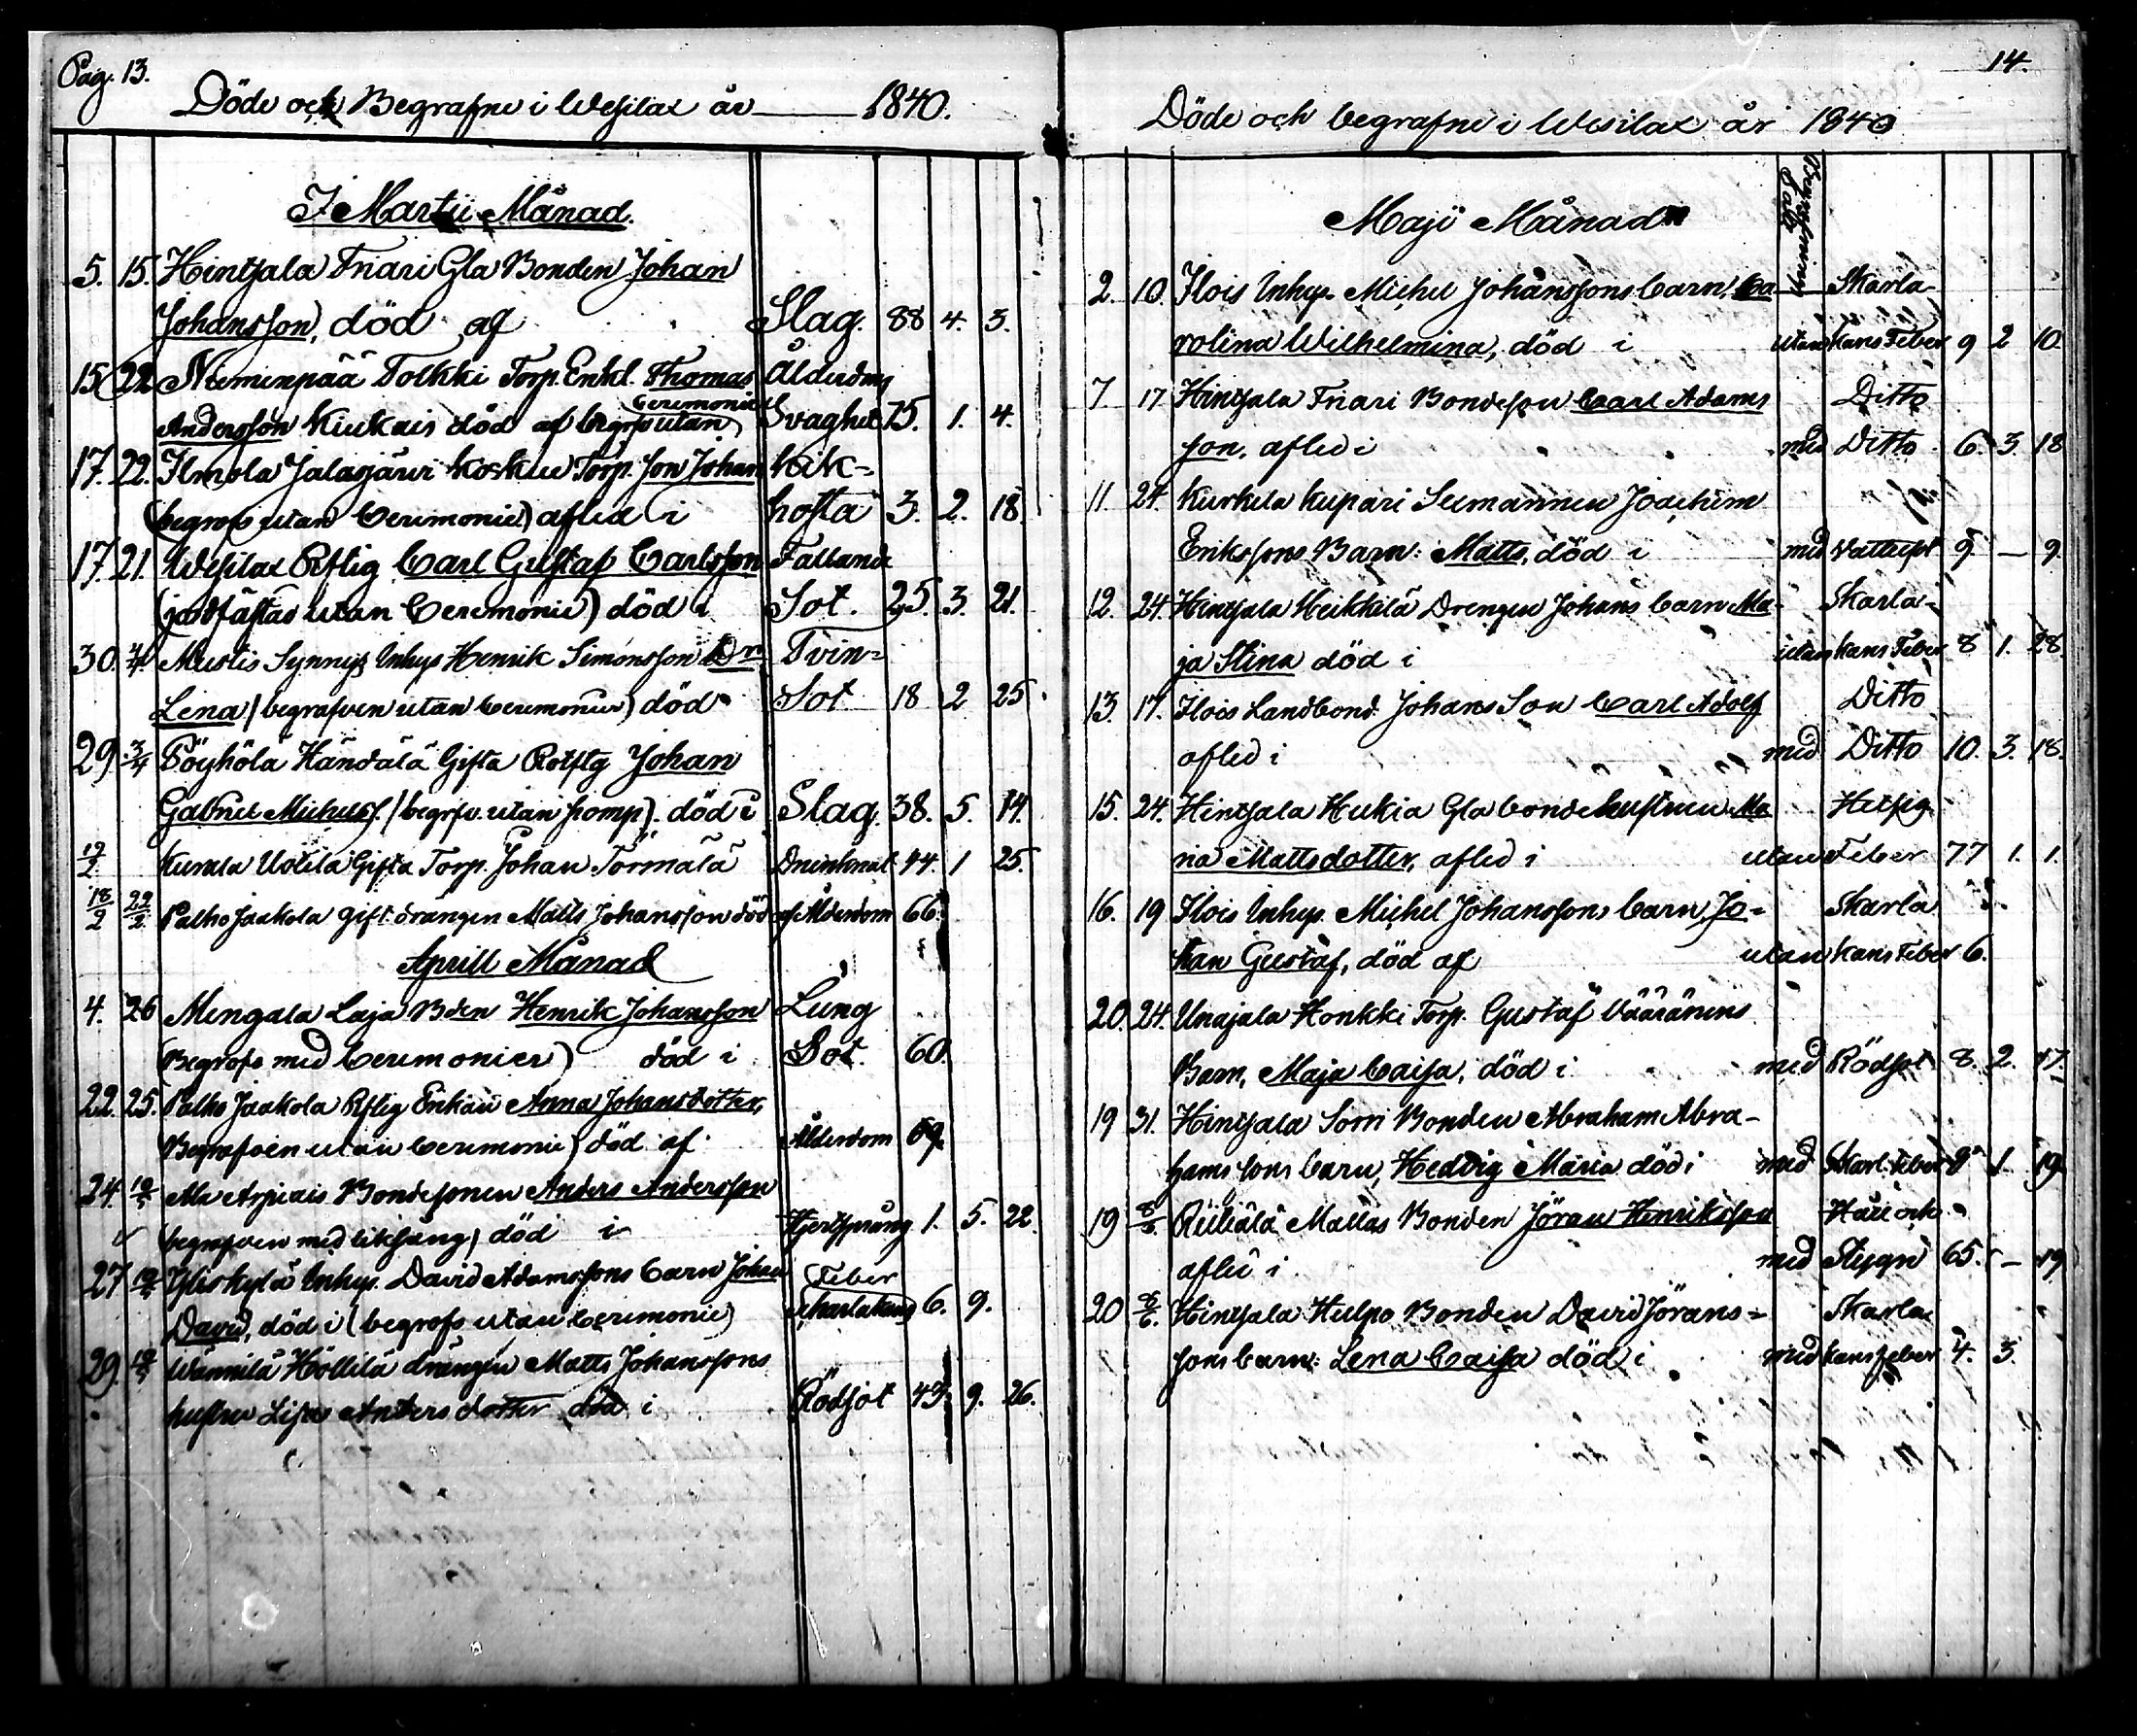 Pag. 13.
Döde och Begrafne i Wesilax år 1840.
I Martii Månad.
5. 15. Hintsala Friari Gla Bonden Johan
Johansson, död af Slag. 88 4. 3.
15 22 Niemenpää Tolkki Torp. Enkl. Thomas Ålderdoms
Andersson Kiukais död af begrofs utan Ceremonie Svaghet 75. 1. 4.
17. 22. Ilmola Jalasjärvi Koskue Torp. Son Johan Kik-
(begrofs utan Ceremonie) afled i hosta 3. 2. 18
17. 21. Wesilax Rftig Carl Gustaf Carlsson Fallande
(jordfästad utan Ceremonie) död i Sot. 25. 3. 21.
30. 3/4 Mustis Synnys Inhys Henrik Simonsson Dr Tvin-
Lena (begrafven utan Ceremonier) död Sot 18 2 25
29 3/4 Pöyhölä Händälä Gifta Rotftg Johan
Gabriel Michelss. (begrfv. utan pomp). död i Slag. 38. 5. 14.
19/2. Kurala Uotila Gifta Torp. Johan Törmälä 44. 1 25.
18/2 22/2 Palho Jaakola gift drängen Matts Johansson död af Ålderdom 66.
Aprill Månad
4. 26 Mengala Laja Bden Henrik Johansson Lung
(Begrofs med Ceremonier) död i Sot. 60.
22. 25. Palho Jaakola Rftig Enkan Anna Johansdotter,
Begrafven utan Ceremonie) död af Ålderdom 69.
24. Ala Arpiais Bondesonen Anders Andersson
(begrafven med liksång) död i Hjertsprång 1. 5. 22.
27 Inhys. David Adamssons barn Johan Feber
David, död i (begrofs utan Ceremonie) Scharlakans 6. 9.
29. Wännilä Höllilä drängen Matts Johanssons
hustru Lisa Andersdotter död i Rödsot 43. 9. 26.
14.
Döde och begrafne i Wesilax år 1840
Begrafning
Maji Månad
2. 10. Ilois Inhys. Michel Johanssons barn, Ca Skarla
rolina Wilhelmina, död i utan kans Feber 9 2 10.
7 17 Hintsala Friari Bondeson Carl Adams Ditto
son. afled i med Ditto 6. 3. 18
11. 24. Kurkela Kupari Joachim
Erikssons Barn: Matts, död i med Vattusot 9 — 9.
12. 24. Hintsala Heikkilä Drengen Johans barn Ma- Skarla-
ja Stina död i utan kans Feber 8 1. 28.
13. 17. Ilois Landbond. Johans Son Carl Adolf Ditto
afled i med Ditto 10. 3. 18.
15. 24. Hintsala Hukia Gla bondehustrun Ma Hetsig
ria Mattsdotter, afled i utan Feber 77 1. 1.
16. 19 Ilois Inhys. Michel Johanssons barn Jo- Skarla
han Gustaf, död af utan kans Feber 6.
20. 24. Unajala Honkki Torp. Gustaf Vääränens
Barn, Maja Caisa, död i med Rödsot 8. 2. 17.
19 31. Hintsala Sorri Bonden Abraham Abra-
hams sons barn, Hedvig Maria död i med Skarl. Feber 9 1. 19.
19 8/6. Riihiälä Mattas Bonden Jöran Henriksson Håll och
afled i med Stygn 65. — 19
20 8/6. Hintsala Hulpo Bonden David Jörans- Skarla
sons barn: Lena Caisa död i med kans feber 4. 3.